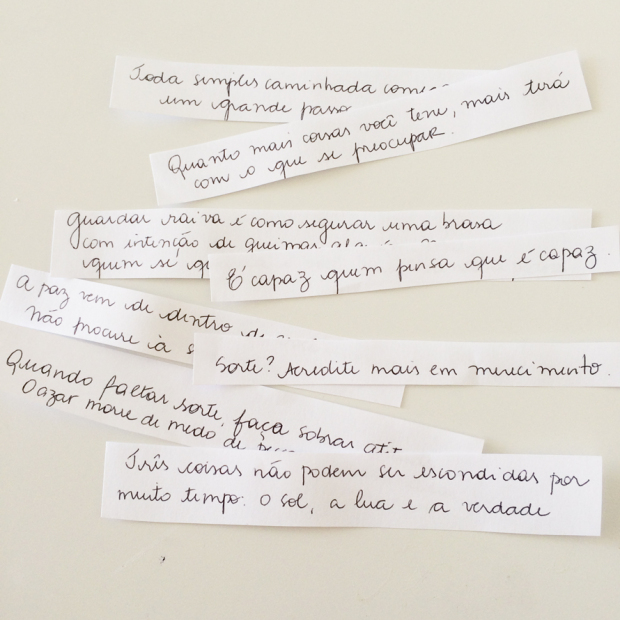 Toda simples caminhada
um grande passo
Quanto mais coisas você tem, mais terá
com o que se preocupar.
guardar raiva é como segurar uma brasa
com intenção de queimar
quem se
É capaz quem pensa que é capaz.
A paz vem de dentro de
não procure à
Sorte? Acredite mais em merecimento.
Quando faltar sorte, faça sobrar
O azar morre de medo de
Três coisas não podem ser escondidas por
muito tempo: o sol, a lua e a verdade